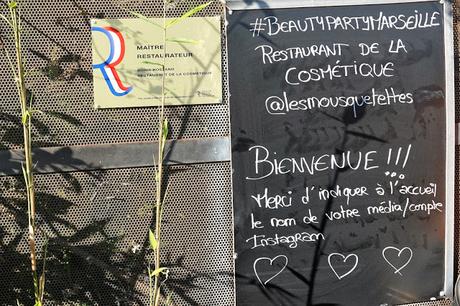 MAÎTRE
RESTAURATEUR
RESTAURANT DE LA COSMÉTIQUE
#BEAUTYPARTYMARSEILLE
RESTAURANT DE LA
COSMÉTIQUE
@lesmousquetettes
BIENVENUE !!!
Merci d'indiquer à l'accueil
le nom de votre média/compte
Instagram